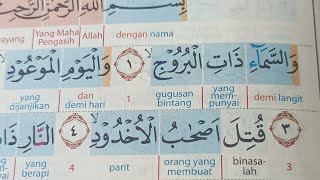 بِسْمِ اللّٰهِ الرَّحْمٰنِ الرَّ
dengan nama Allah Yang Maha Pengasih ayang
وَالسَّمَاۤءِ ذَاتِ الْبُرُوْجِۙ ١ وَالْيَوْمِ الْمَوْعُوْدِۙ
demi langit yang mem-punyai gugusan bintang 1 dan demi hari yang dijanjikan
٣ قُتِلَ اَصْحٰبُ الْاُخْدُوْدِۙ ٤ النَّارِ ذَا
3 binasa-lah orang yang membuat parit 4 yang berapi